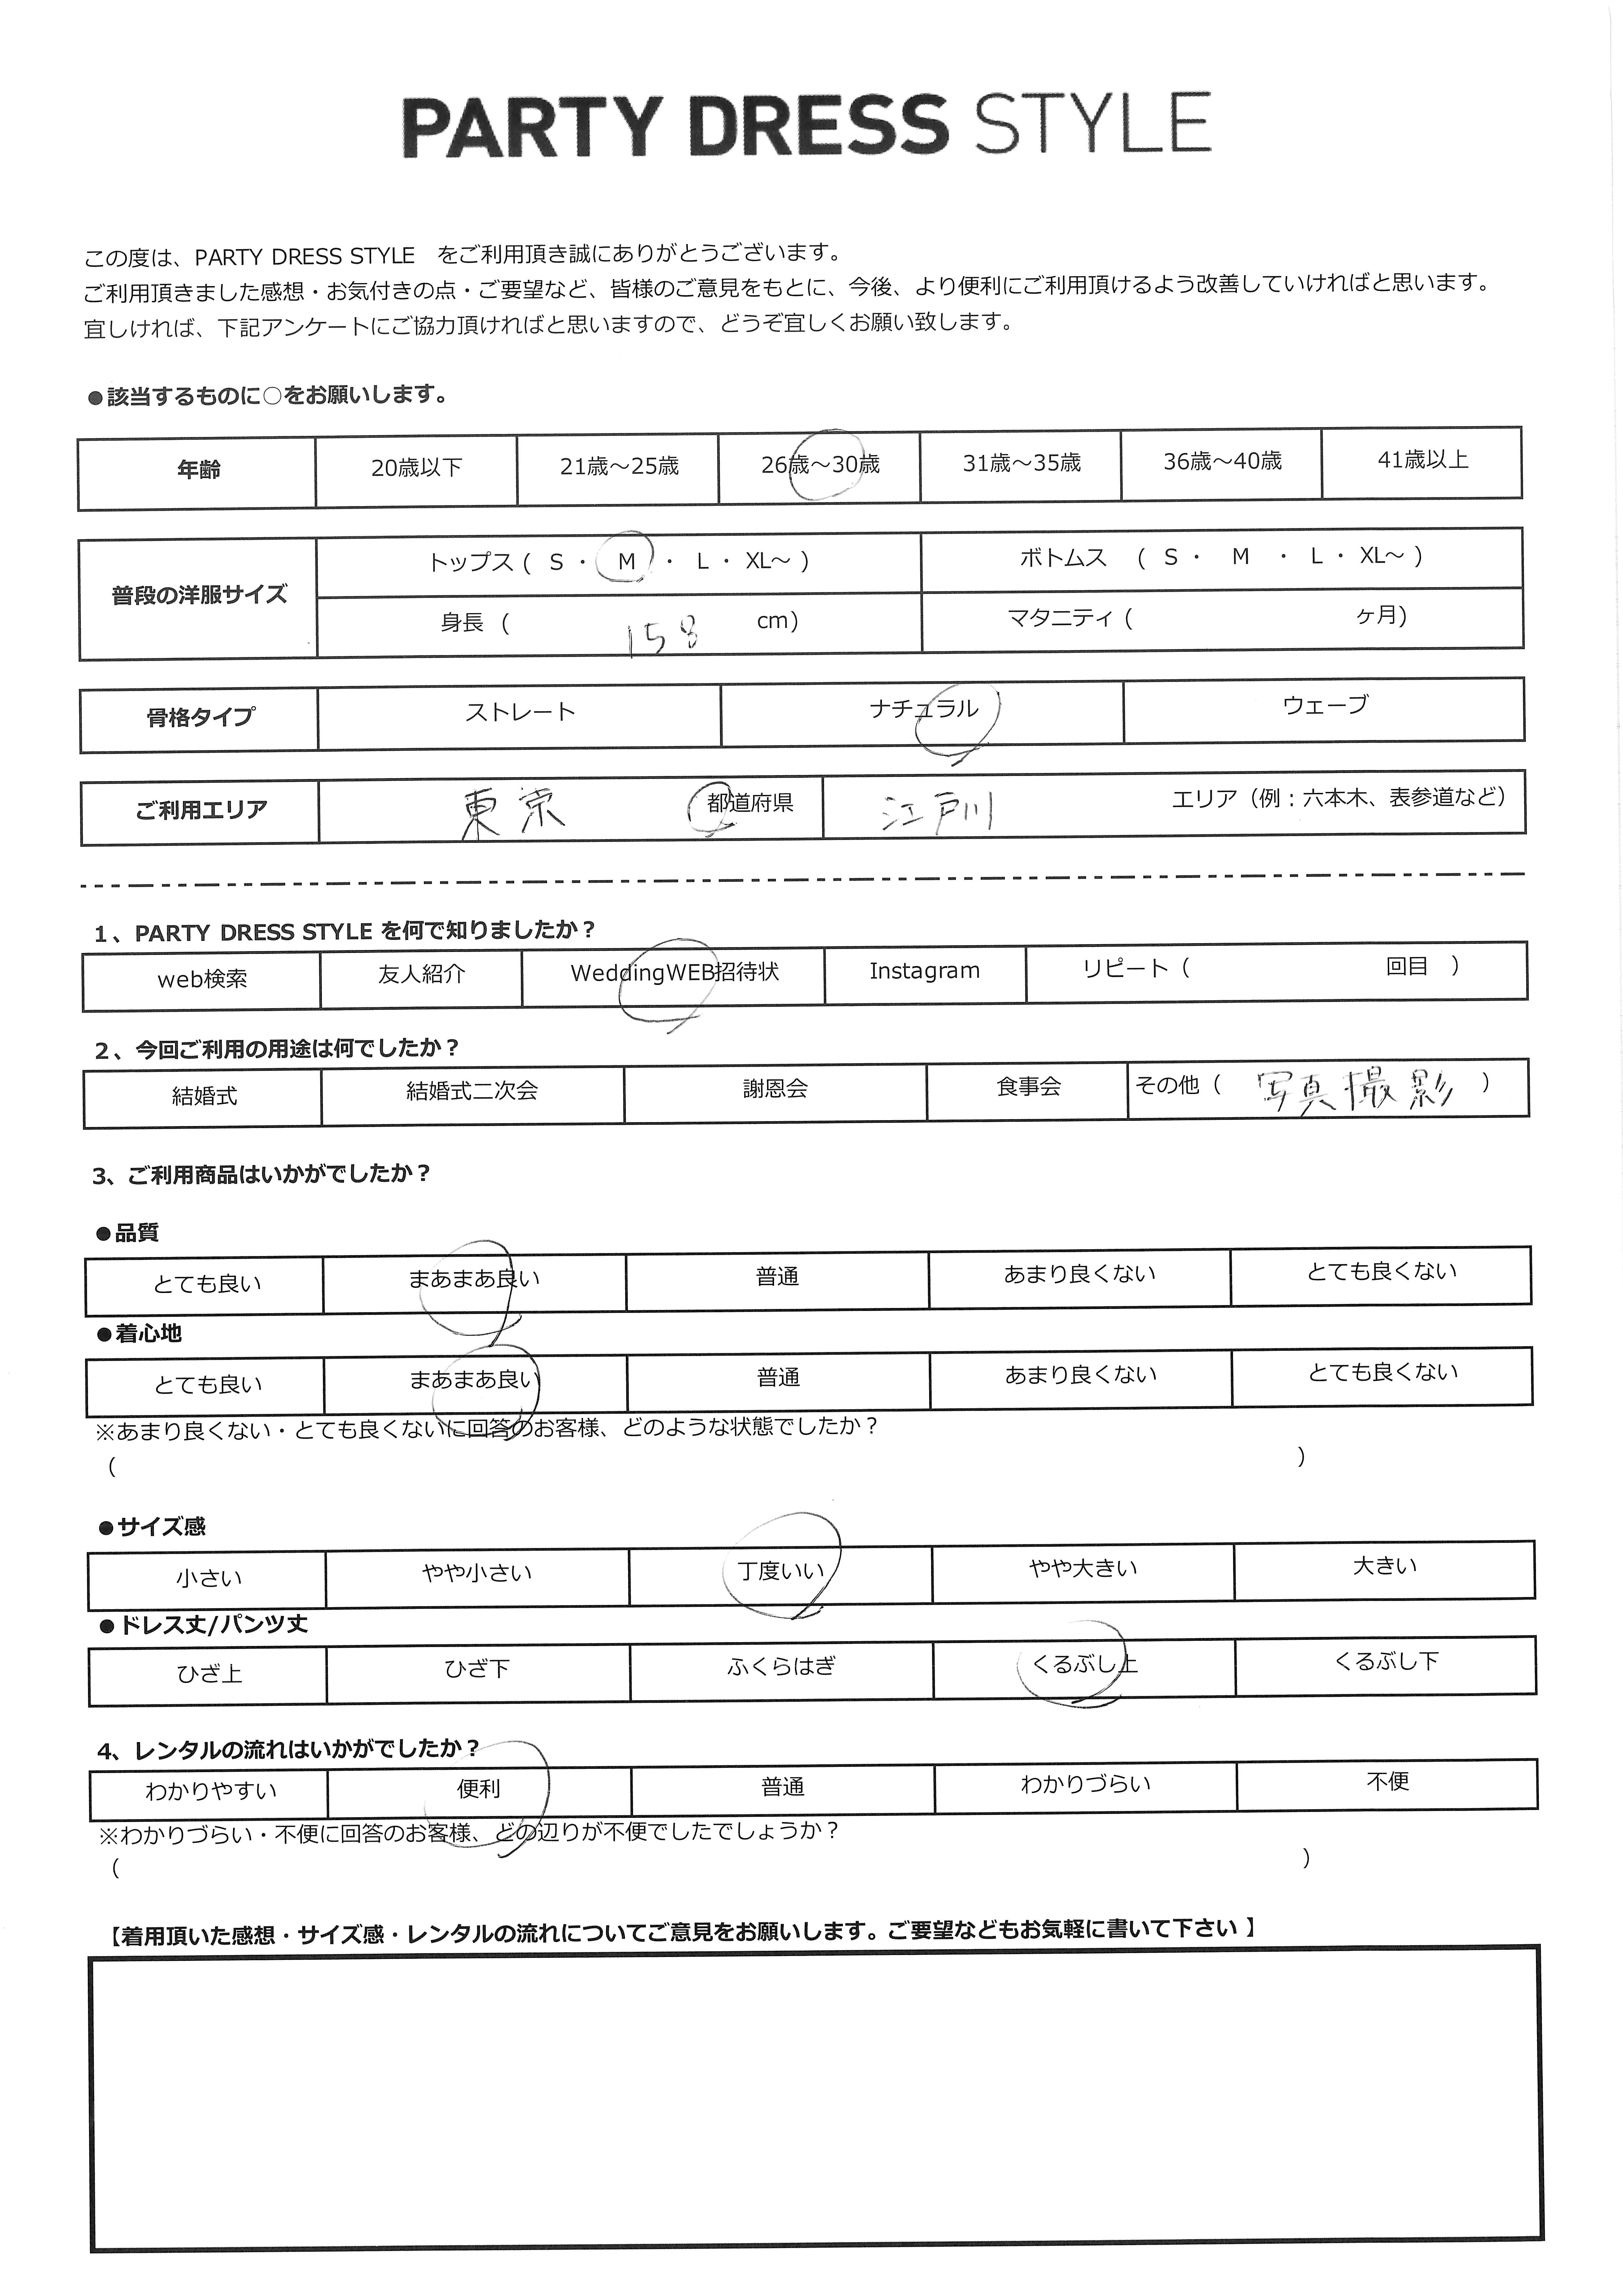 PARTY DRESS STYLE
この度は、PARTY DRESS STYLE　をご利用頂き誠にありがとうございます。
ご利用頂きました感想・お気付きの点・ご要望など、皆様のご意見をもとに、今後、より便利にご利用頂けるよう改善していければと思います。
宜しければ、下記アンケートにご協力頂ければと思いますので、どうぞ宜しくお願い致します。
●該当するものに○をお願いします。
年齢 20歳以下 21歳～25歳 26歳～30歳 31歳～35歳 36歳～40歳 41歳以上
普段の洋服サイズ トップス ( S ・ M ・ L ・ XL～ ) ボトムス ( S ・ M ・ L ・ XL～ )
身長 ( 158 cm) マタニティ ( ヶ月)
骨格タイプ ストレート ナチュラル ウェーブ
ご利用エリア 東京 都道府県 江戸川 エリア（例：六本木、表参道など）
1、PARTY DRESS STYLE を何で知りましたか？
web検索 友人紹介 WeddingWEB招待状 Instagram リピート（ 回目 ）
2、今回ご利用の用途は何でしたか？
結婚式 結婚式二次会 謝恩会 食事会 その他（ 写真撮影 ）
3、ご利用商品はいかがでしたか？
●品質
とても良い まあまあ良い 普通 あまり良くない とても良くない
●着心地
とても良い まあまあ良い 普通 あまり良くない とても良くない
※あまり良くない・とても良くないに回答のお客様、どのような状態でしたか？
（ ）
●サイズ感
小さい やや小さい 丁度いい やや大きい 大きい
●ドレス丈/パンツ丈
ひざ上 ひざ下 ふくらはぎ くるぶし上 くるぶし下
4、レンタルの流れはいかがでしたか？
わかりやすい 便利 普通 わかりづらい 不便
※わかりづらい・不便に回答のお客様、どの辺りが不便でしたでしょうか？
（ ）
【着用頂いた感想・サイズ感・レンタルの流れについてご意見をお願いします。ご要望などもお気軽に書いて下さい 】